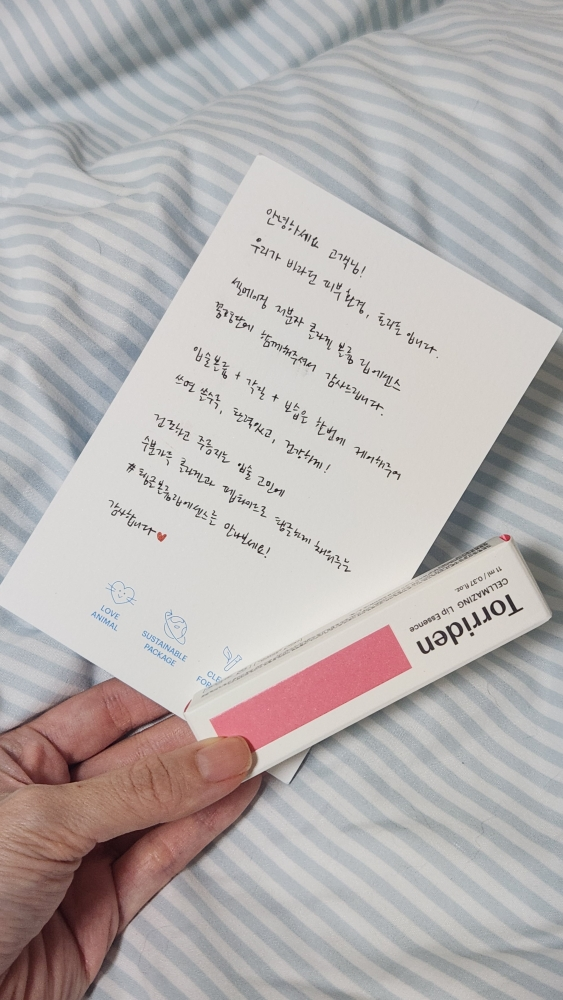 안녕하세요 고객님!
우리가 바라던 피부환경, 토리든입니다.
셀메이징 저분자 콜라겐 볼륨 립에센스
품평단에 함께해주셔서 감사드립니다.
입술볼륨 + 각질 + 보습을 한번에 케어해주어
쓰면 쓸수록, 탄력있고, 건강하게!
건조하고 주름지는 입술 고민에
수분가득 콜라겐과 펩타이드로 탱글하게 채워주는
#탱글볼륨립에센스를 만나보세요!
감사합니다
LOVE
ANIMAL
SUSTAINABLE
PACKAGE
Torriden
CELLMAZING Lip Essence
11 ml / 0.37 fl.oz.